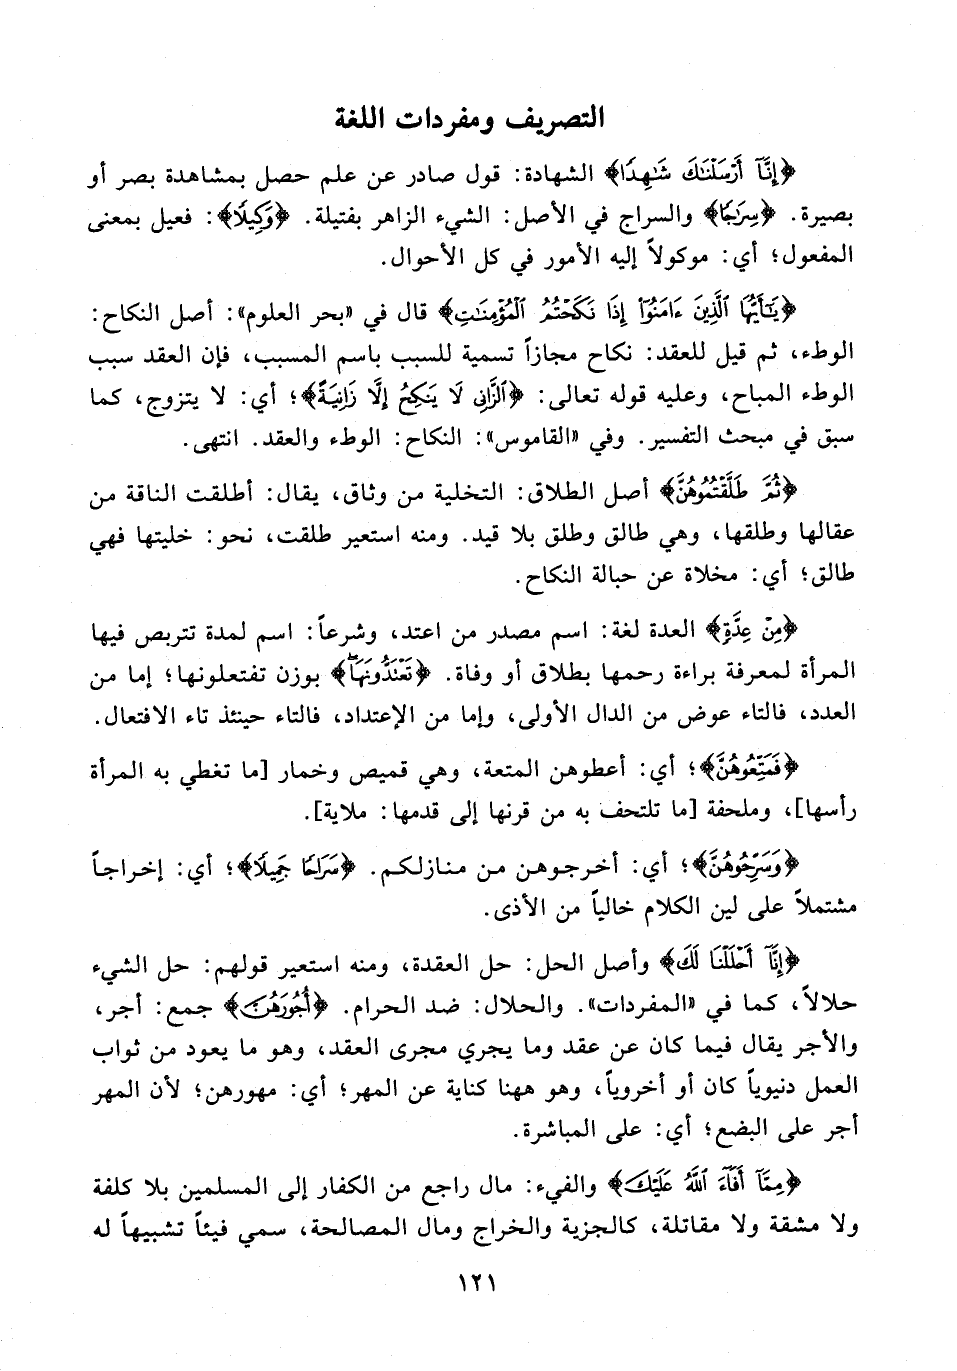 التصريف ومفردات اللغة
﴿إِنَّآ أَرْسَلْنَٰكَ شَٰهِدًا﴾ الشهادة: قول صادر عن علم حصل بمشاهدة بصر أو
بصيرة. ﴿سِرَاجًا﴾ والسراج في الأصل: الشيء الزاهر بفتيلة. ﴿وَكِيلًا﴾: فعيل بمعنى
المفعول؛ أي: موكولاً إليه الأمور في كل الأحوال.
﴿يَٰٓأَيُّهَا ٱلَّذِينَ ءَامَنُوٓا۟ إِذَا نَكَحْتُمُ ٱلْمُؤْمِنَٰتِ﴾ قال في «بحر العلوم»: أصل النكاح:
الوطء، ثم قيل للعقد: نكاح مجازاً تسمية للسبب باسم المسبب، فإن العقد سبب
الوطء المباح، وعليه قوله تعالى: ﴿ٱلزَّانِى لَا يَنكِحُ إِلَّا زَانِيَةً﴾؛ أي: لا يتزوج، كما
سبق في مبحث التفسير. وفي «القاموس»: النكاح: الوطء والعقد. انتهى.
﴿ثُمَّ طَلَّقْتُمُوهُنَّ﴾ أصل الطلاق: التخلية من وثاق، يقال: أطلقت الناقة من
عقالها وطلقها، وهي طالق وطلق بلا قيد. ومنه استعير طلقت، نحو: خليتها فهي
طالق؛ أي: مخلاة عن حبالة النكاح.
﴿مِنْ عِدَّةٍ﴾ العدة لغة: اسم مصدر من اعتد، وشرعاً: اسم لمدة تتربص فيها
المرأة لمعرفة براءة رحمها بطلاق أو وفاة. ﴿تَعْتَدُّونَهَا﴾ بوزن تفتعلونها؛ إما من
العدد، فالتاء عوض من الدال الأولى، وإما من الإعتداد، فالتاء حينئذ تاء الافتعال.
﴿فَمَتِّعُوهُنَّ﴾؛ أي: أعطوهن المتعة، وهي قميص وخمار [ما تغطي به المرأة
رأسها]، وملحفة [ما تلتحف به من قرنها إلى قدمها: ملاية].
﴿وَسَرِّحُوهُنَّ﴾؛ أي: أخرجوهن من منازلكم. ﴿سَرَاحًا جَمِيلًا﴾؛ أي: إخراجاً
مشتملاً على لين الكلام خالياً من الأذى.
﴿إِنَّآ أَحْلَلْنَا لَكَ﴾ وأصل الحل: حل العقدة، ومنه استعير قولهم: حل الشيء
حلالاً، كما في «المفردات». والحلال: ضد الحرام. ﴿أُجُورَهُنَّ﴾ جمع: أجر،
والأجر يقال فيما كان عن عقد وما يجري مجرى العقد، وهو ما يعود من ثواب
العمل دنيوياً كان أو أخروياً، وهو ههنا كناية عن المهر؛ أي: مهورهن؛ لأن المهر
أجر على البضع؛ أي: على المباشرة.
﴿مِمَّآ أَفَآءَ ٱللَّهُ عَلَيْكَ﴾ والفيء: مال راجع من الكفار إلى المسلمين بلا كلفة
ولا مشقة ولا مقاتلة، كالجزية والخراج ومال المصالحة، سمي فيئاً تشبيهاً له
١٢١